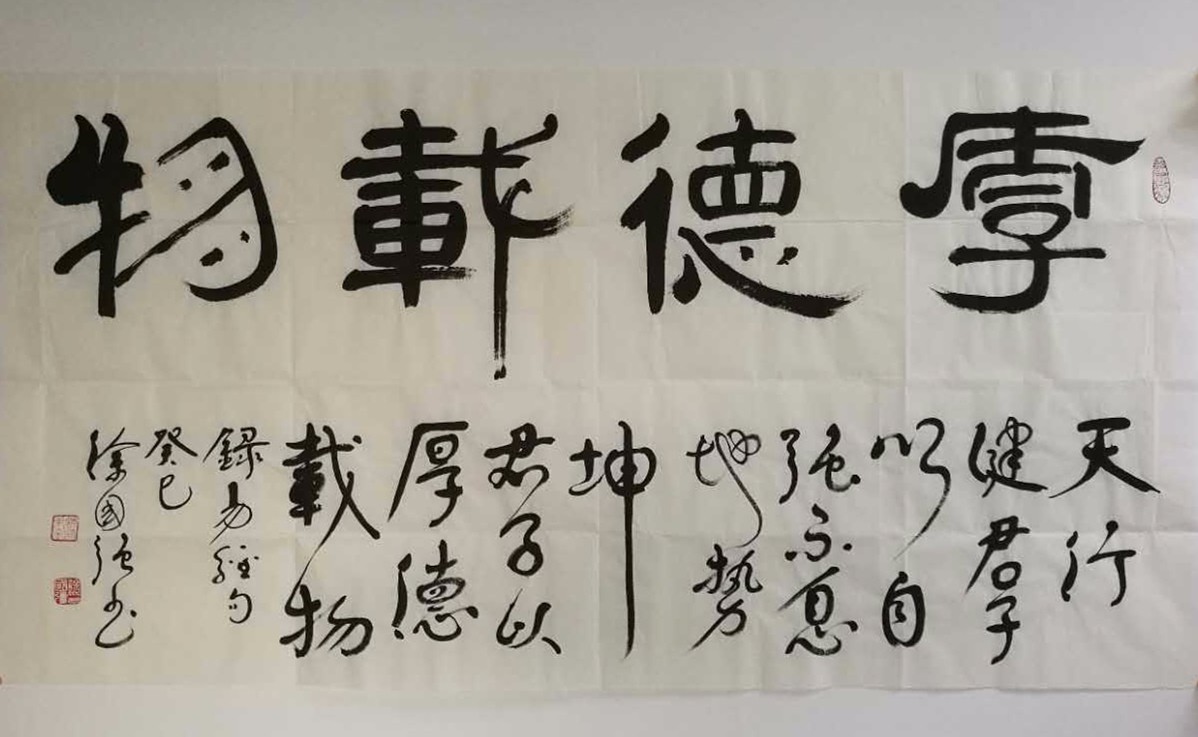 厚德載物
天行
健君子
以自
强不息
地势
坤
君子以
厚德
載物
録易經句
癸巳
徐國强书